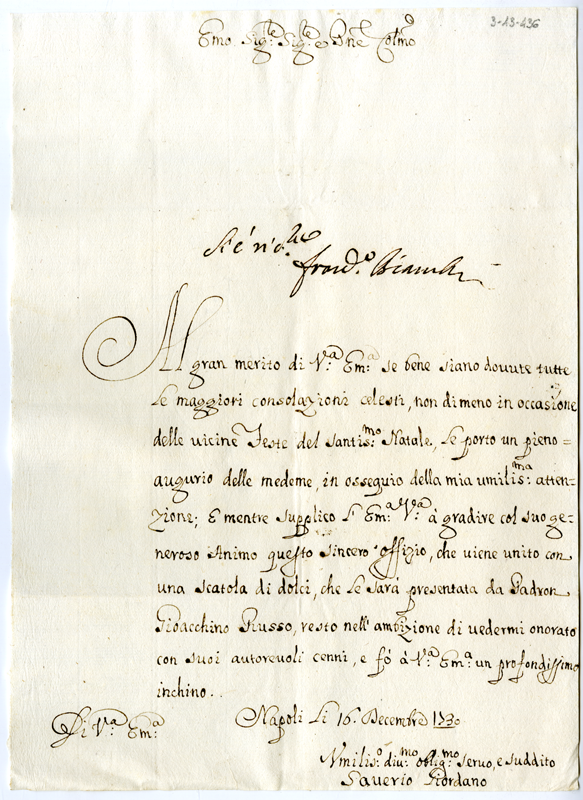 3-13-436
Emo. Sig.re Sig.re e Pne Colmo
Al gran merito di V.a Em.a se bene siano dovute tutte
le maggiori consolazioni celesti, non dimeno in occasione
delle vicine Feste del santis.mo Natale, Le porto un pieno=
augurio delle medeme, in ossequio della mia umilis.ma atten=
zione; E mentre supplico L'Em.a V.a à gradire col suo ge=
neroso Animo questo sincero offizio, che viene unito con
una scatola di dolci, che Le sarà presentata da Padron
Gioacchino Russo, resto nell'ambizione di vedermi onorato
con suoi autorevoli cenni, e fó à V.a Em.a un profondissimo
inchino..
Di V.a Em.a
Napoli Li 16. Decembre 1730
Vmilis.o div.mo oblig.mo servo, e suddito
Saverio Giordano